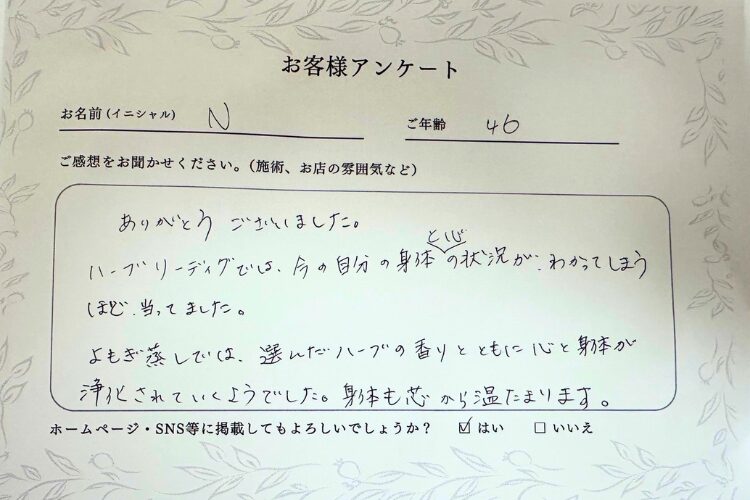 お客様アンケート
お名前(イニシャル) N
ご年齢 46
ご感想をお聞かせください。(施術、お店の雰囲気など)
ありがとうございました。
ハーブリーディグでは、今の自分の身体と心の状況が、わかってしまう
ほど、当ってました。
よもぎ蒸しでは、選んだハーブの香りとともに心と身体が
浄化されていくようでした。身体も芯から温たまります。
ホームページ・SNS等に掲載してもよろしいでしょうか? ☑ はい □ いいえ